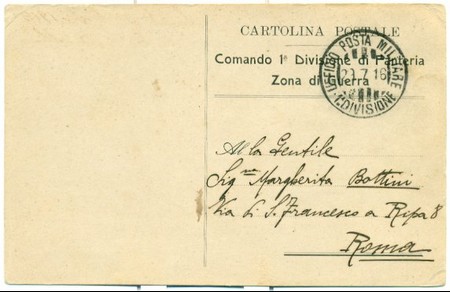 CARTOLINA POSTALE
Comando 1ª Divisione di Fanteria
Zona di Guerra
UFFICIO POSTA MILITARE
23.7.16
1. DIVISIONE
Alla Gentile
Signa Margherita Bottini
Via di S. Francesco a Ripa 8
Roma